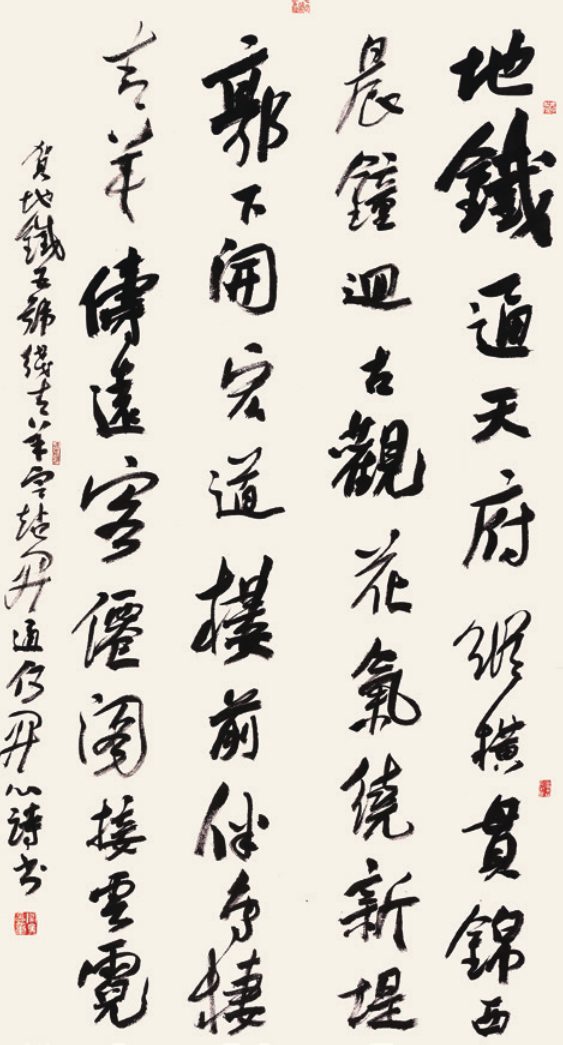 地鐵通天府縱橫貫錦西
晨鐘迴古觀花氣繞新堤
郭下開宏道樓前伴鳥棲
青羊傳遠客僊閣接雲霓
賀地鐵五號綫青羊宮站開通何開心詩書